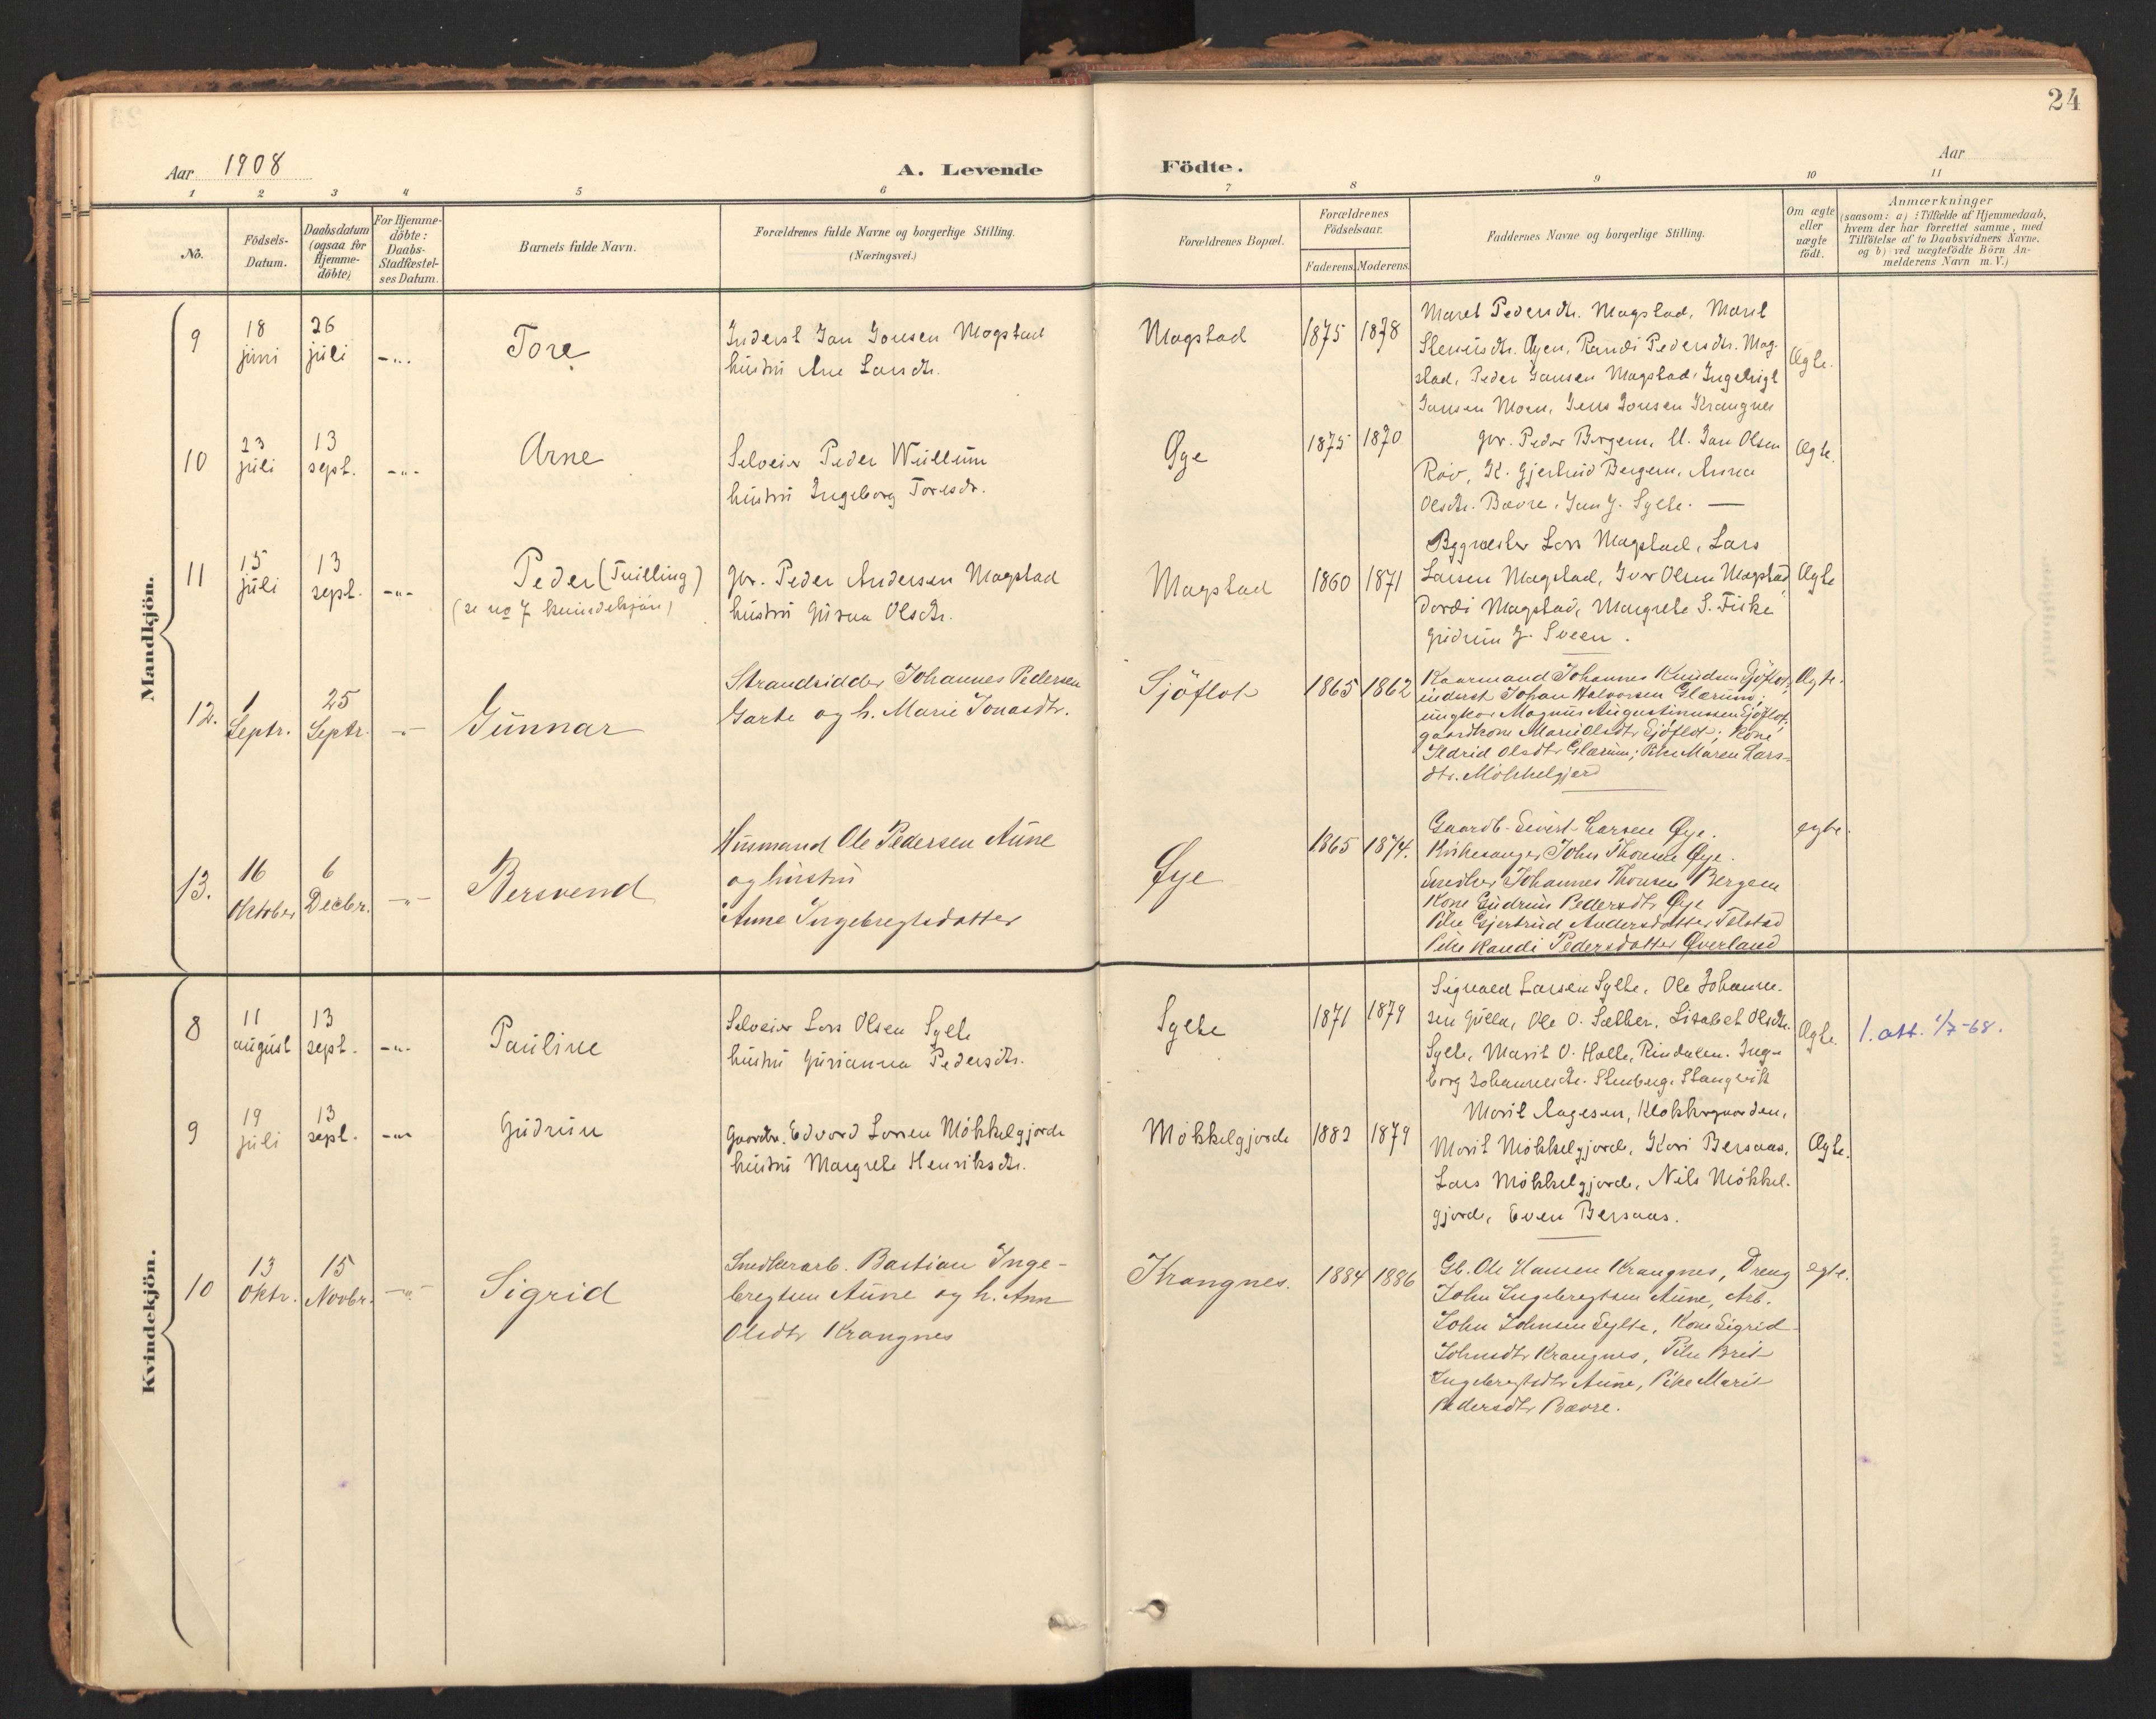 24
Aar 1908
A. Levende
Födte.
Aar
1 2 3 4 5 6 7 8 9 10 11
No.
Födsels-
Datum.
Daabsdatum
(ogsaa for
Hjemme-
döbte)
For Hjemme-
döbte:
Daabs-
Stadfæstel-
ses Datum.
Barnets fulde Navn.
Forældrenes fulde Navne og borgerlige Stilling.
(Næringsvei.)
Forældrenes Bopæl.
Forældrenes
Födselsaar.
Faderens. Moderens.
Faddernes Navne og borgerlige Stilling.
Om ægte
eller
uægte
födt.
Anmærkninger
(saasom: a) : Tilfælde af Hjemmedaab,
hvem der har forrettet samme, med
Tilföielse af to Daabsvidners Navne,
og b) ved uægtefödte Börn An-
melderens Navn m. V.)
Mandkjön.
9
18
juni
26
juli
-"-
Tore
Inderst Jan Jonsen Magstad
hustru Ane Larsdtr.
Magstad
1875 1878
Maret Pedersdtr. Magstad, Marit
Randi Pedersdtr. Mag-
stad, Peder Jansen Magstad, Ingebrigt
Jansen Moen, Jens Jonsen Krangnes
Ægte.
10
23
juli
13
sept.
-"-
Arne
Selveier Peder Wullum
hustru Ingeborg Toresdr.
Øye
1875 1870
gbr. Peder Bergem, U. Jan Olsen
Röv, K. Gjertrud Bergem, Anna
Olsdtr. Bævre, Jan J. Sylte. —
Ægte.
11
15
juli
13
sept.
-"-
Peder (Tvilling)
(se no 7 kvindekjön)
gbr. Peder Andersen Magstad
hustru Gurua Olsdtr.
Magstad
1860 1871
Bygmester Lars Magstad, Lars
Larsen Magstad, Iver Olsen Magstad,
Dordi Magstad, Margrete S. Fiske
Gudrun J. Sveen.
Ægte
12.
1
Septr.
25
Septr.
-"-
Gunnar
Strandsidder Johannes Pedersen
Garte og h. Marie Jonasdtr.
Sjöflot
1865 1862
Kaarmand Johannes Knudsen Sjöflot;
inderst Johan Halvorsen Glærum;
ungkar Magnus Augustinussen Sjöflot,
gaardkone Marie Olsdtr Sjöflot; Kone
Sidrid Olsdtr Glærum; Pike Maren Lars-
dtr. Mökkelgjerd
Ægte.
13.
16
Oktober
6
Decbr.
-"-
Bersvend
Husmand Ole Pedersen Aune
og hustru
Anne Ingebregtsdatter
Øye
1865 1874.
Gaardb. Sivert Larsen Øye.
Kirkesanger John Thonsen Øye.
Snedker Johannes Thonsen Bergem
Kone Gudrun Pedersdtr Øye
Pike Gjertrud Andersdatter Telstad
Pike Randi Pedersdatter Øverland
egte.
Kvindekjön.
8
11
august
13
sept.
-"-
Pauline
Selveier Lars Olsen Sylte
hustru Gurianna Pedersdtr.
Sylte
1871 1879
Sigvald Larsen Sylte, Ole Johanne-
sen Gulla, Ole O. Sæther, Lisabet Olsdtr.
Sylte, Marit O. Halle, Rindalen. Inge-
borg Johannesdtr. Stenberg. Stangvik
Ægte.
1. att. 1/7-68.
9
19
juli
13
sept.
-"-
Gudrun
Gaardbr. Edvard Larsen Mökkelgjerde
hustru Margrete Henriksdtr.
Mökkelgjerde
1882 1879
Marit Aagesen, Klokkergaarden,
Marit Mökkelgjerde, Kari Bersaas,
Lars Mökkelgjerde, Nils Mökkel-
gjerde, Even Bersaas.
Ægte.
10
13
Oktr.
15
Novbr.
-"-
Sigrid
Snedkerarb. Bastian Inge-
bregtsen Aune og h. Ann
Olsdtr Krangnes
Krangnes.
1884 1886
Gb. Ole Hansen Krangnes, Dreng
John Ingebregtsen Aune, Arb.
John Johnsen Sylte, Kone Sigrid
Johnsdtr Krangnes, Pike Brit
Ingebregtsdtr Aune, Pike Marit
Pedersdtr Bævre.
egte.